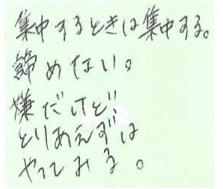 集中するときは集中する。
諦めない。
嫌だけど、
とりあえずは
やってみる。